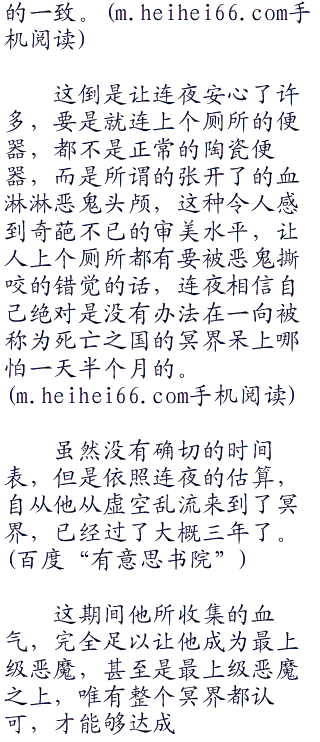 的一致。(m.heihei66.com手
机阅读)
这倒是让连夜安心了许
多，要是就连上个厕所的便
器，都不是正常的陶瓷便
器，而是所谓的张开了的血
淋淋恶鬼头颅，这种令人感
到奇葩不已的审美水平，让
人上个厕所都有要被恶鬼撕
咬的错觉的话，连夜相信自
己绝对是没有办法在一向被
称为死亡之国的冥界呆上哪
怕一天半个月的。
(m.heihei66.com手机阅读)
虽然没有确切的时间
表，但是依照连夜的估算，
自从他从虚空乱流来到了冥
界，已经过了大概三年了。
(百度“有意思书院”)
这期间他所收集的血
气，完全足以让他成为最上
级恶魔，甚至是最上级恶魔
之上，唯有整个冥界都认
可，才能够达成